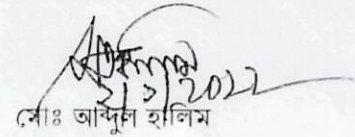 ২/১/2022
মোঃ আব্দুল হালিম